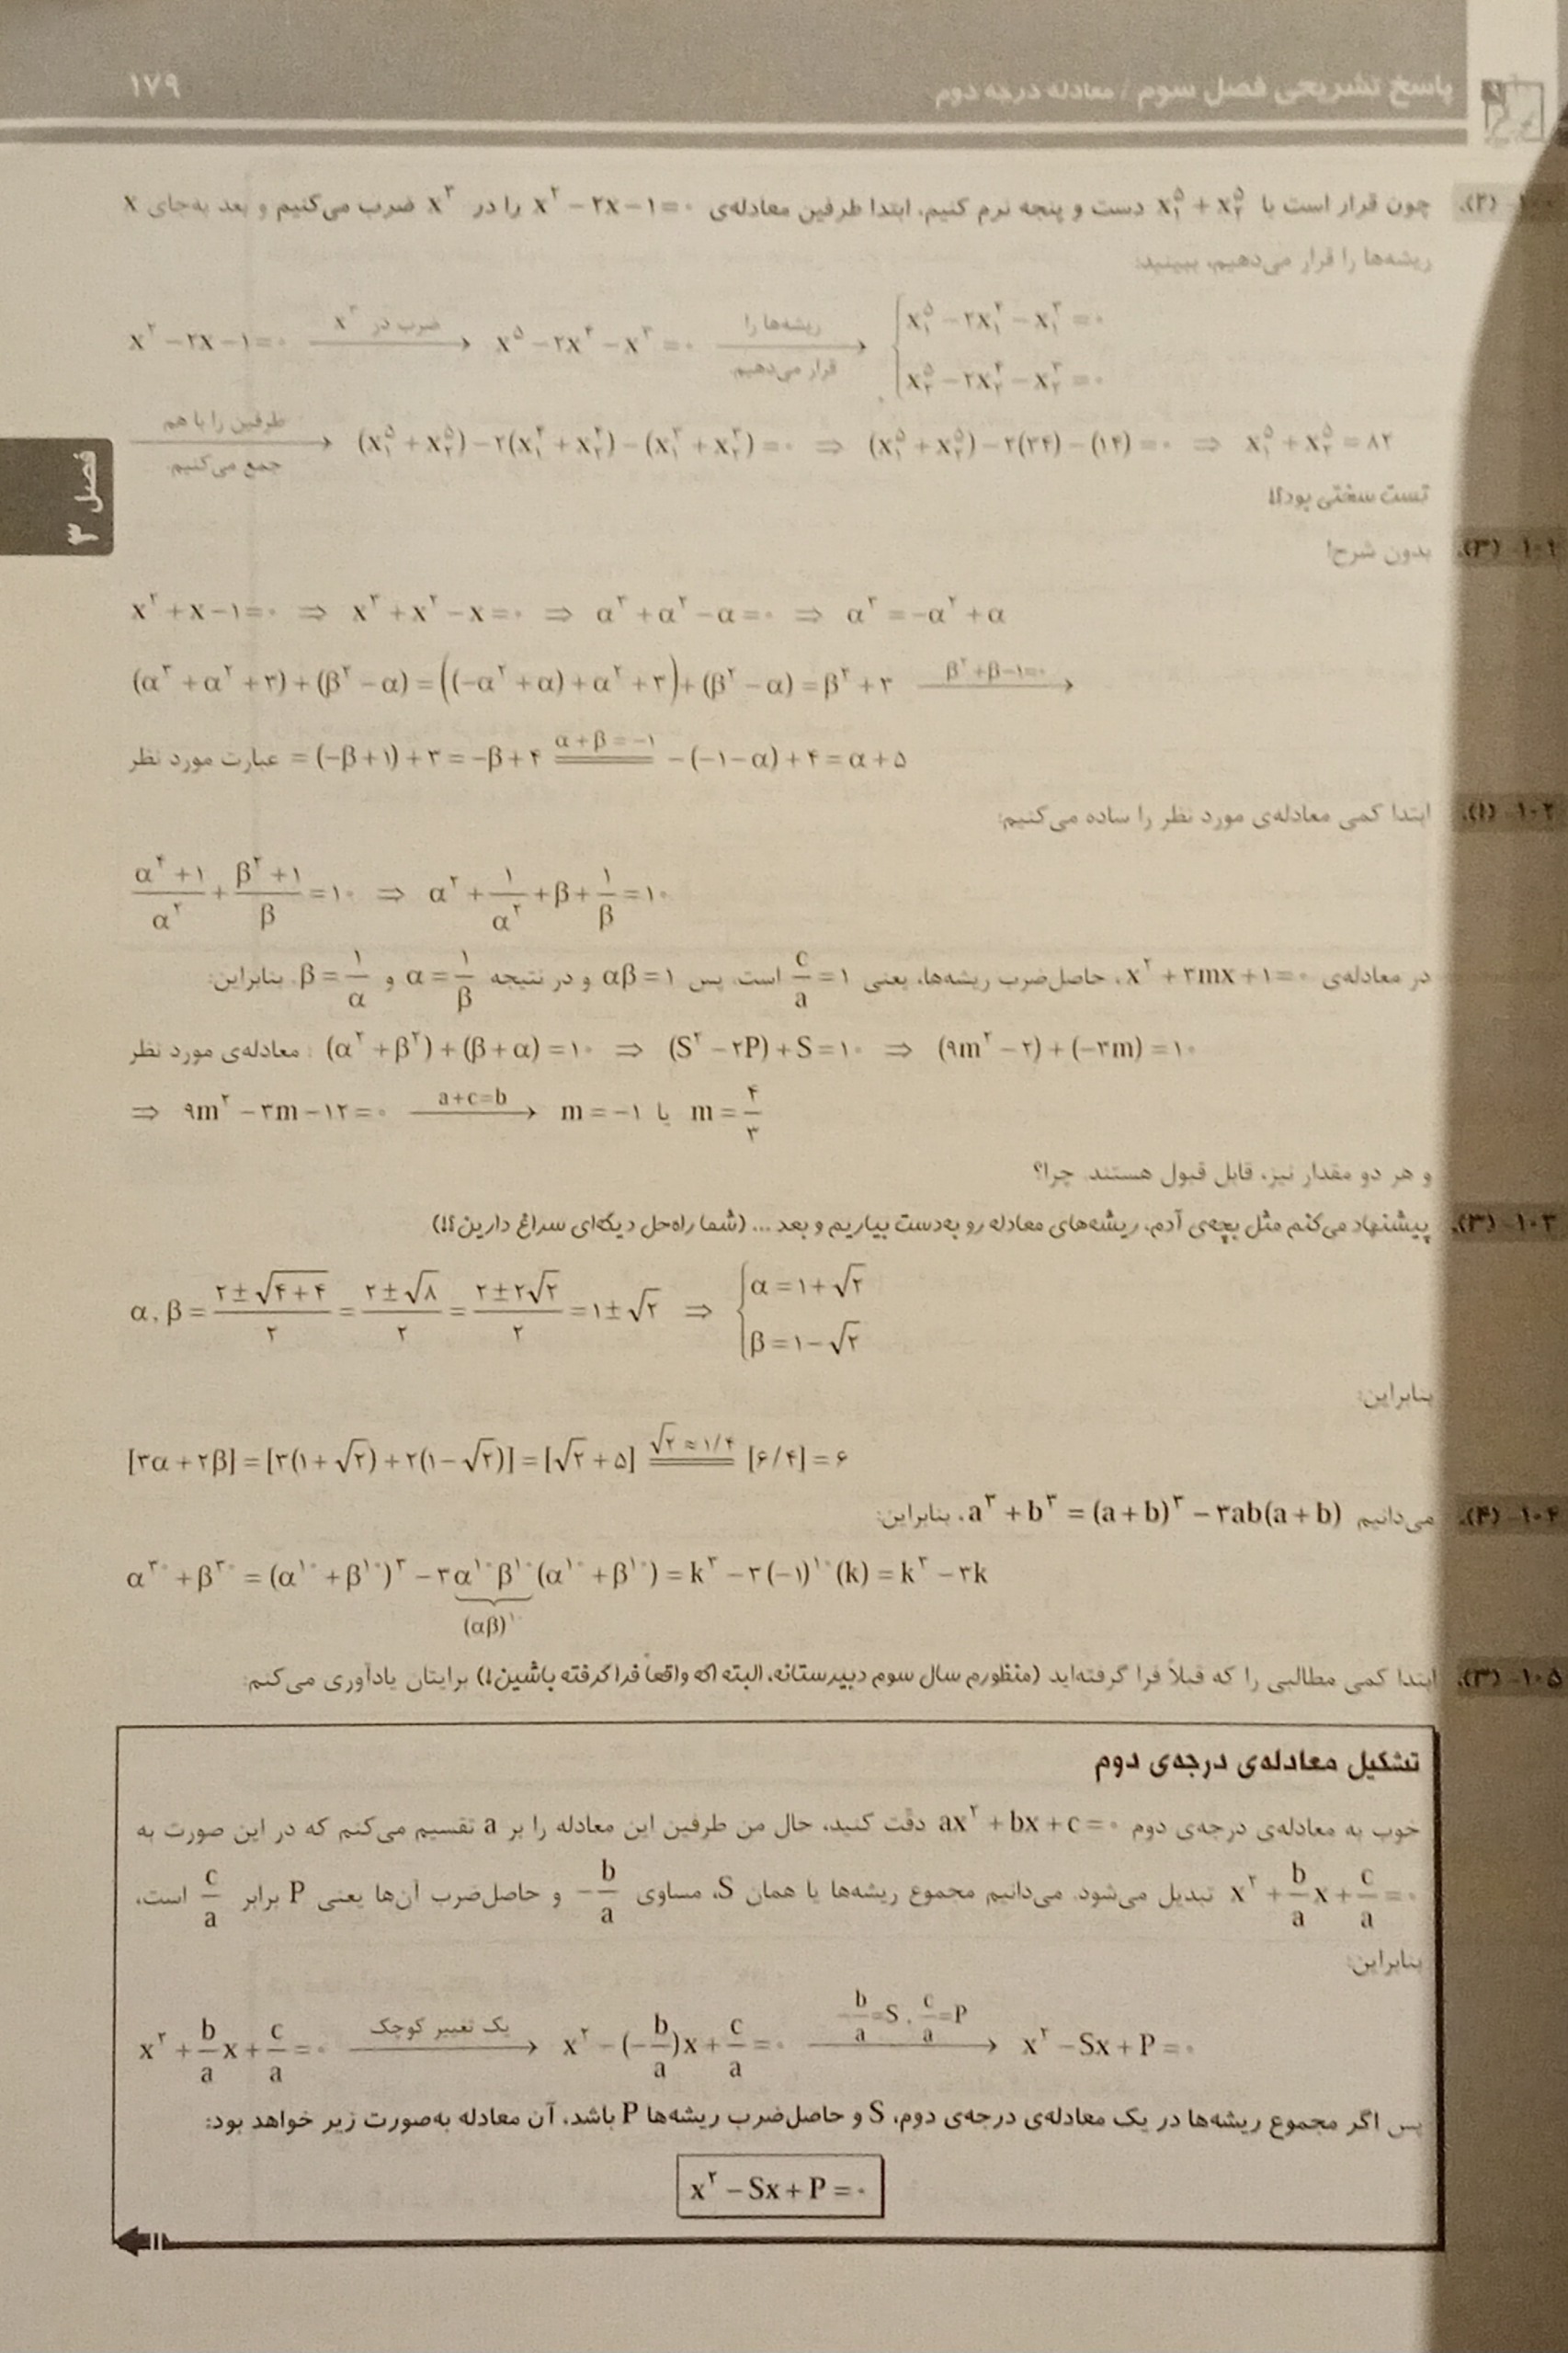 پاسخ تشریحی فصل سوم / معادله درجه دوم ۱۷۹
(۲). چون قرار است با x₁⁵ + x₂⁵ دست و پنجه نرم کنیم، ابتدا طرفین معادله‌ی x² − ۲x − ۱ = ۰ را در x³ ضرب می‌کنیم و بعد به‌جای x
ریشه‌ها را قرار می‌دهیم، ببینید:
x² − ۲x − ۱ = ۰ ضرب در x³ → x⁵ − ۲x⁴ − x³ = ۰ ریشه‌ها را قرار می‌دهیم → { x₁⁵ − ۲x₁⁴ − x₁³ = ۰
x₂⁵ − ۲x₂⁴ − x₂³ = ۰
طرفین را با هم جمع می‌کنیم → (x₁⁵ + x₂⁵) − ۲(x₁⁴ + x₂⁴) − (x₁³ + x₂³) = ۰ ⇒ (x₁⁵ + x₂⁵) − ۲(۳۴) − (۱۴) = ۰ ⇒ x₁⁵ + x₂⁵ = ۸۲
تست سختی بود!!
فصل ۳
۱۰۱- (۳). بدون شرح!
x² + x − ۱ = ۰ ⇒ x³ + x² − x = ۰ ⇒ α³ + α² − α = ۰ ⇒ α³ = −α² + α
(α³ + α² + ۳) + (β² − α) = ((−α² + α) + α² + ۳) + (β² − α) = β² + ۳ β² + β − ۱ = ۰ →
عبارت مورد نظر = (−β + ۱) + ۳ = −β + ۴ α + β = −۱ = −(−۱ − α) + ۴ = α + ۵
۱۰۲- (۱). ابتدا کمی معادله‌ی مورد نظر را ساده می‌کنیم:
(α⁴ + ۱)/α² + (β² + ۱)/β = ۱۰ ⇒ α² + ۱/α² + β + ۱/β = ۱۰
در معادله‌ی x² + ۳mx + ۱ = ۰، حاصل‌ضرب ریشه‌ها، یعنی c/a = ۱ است. پس αβ = ۱ و در نتیجه α = ۱/β و β = ۱/α. بنابراین:
معادله‌ی مورد نظر : (α² + β²) + (β + α) = ۱۰ ⇒ (S² − ۲P) + S = ۱۰ ⇒ (۹m² − ۲) + (−۳m) = ۱۰
⇒ ۹m² − ۳m − ۱۲ = ۰ a+c=b → m = −۱ یا m = ۴/۳
و هر دو مقدار نیز، قابل قبول هستند. چرا؟
۱۰۳- (۳). پیشنهاد می‌کنم مثل بچه‌ی آدم، ریشه‌های معادله رو به‌دست بیاریم و بعد ... (شما راه‌حل دیگه‌ای سراغ دارین؟!)
α, β = (۲ ± √(۴ + ۴))/۲ = (۲ ± √۸)/۲ = (۲ ± ۲√۲)/۲ = ۱ ± √۲ ⇒ { α = ۱ + √۲
β = ۱ − √۲
بنابراین:
[۳α + ۲β] = [۳(۱ + √۲) + ۲(۱ − √۲)] = [√۲ + ۵] √۲ ≈ ۱/۴ = [۶/۴] = ۶
۱۰۴- (۴). می‌دانیم a³ + b³ = (a + b)³ − ۳ab(a + b)، بنابراین:
α³۰ + β³۰ = (α¹⁰ + β¹⁰)³ − ۳α¹⁰β¹⁰(α¹⁰ + β¹⁰) = k³ − ۳(−۱)¹⁰(k) = k³ − ۳k
(αβ)¹⁰
۱۰۵- (۳). ابتدا کمی مطالبی را که قبلاً فرا گرفته‌اید (منظورم سال سوم دبیرستانه، البته اگه واقعاً فرا گرفته باشین!) برایتان یادآوری می‌کنم:
تشکیل معادله‌ی درجه‌ی دوم
خوب به معادله‌ی درجه‌ی دوم ax² + bx + c = ۰ دقّت کنید، حال من طرفین این معادله را بر a تقسیم می‌کنم که در این صورت به
x² + b/a x + c/a = ۰ تبدیل می‌شود. می‌دانیم مجموع ریشه‌ها یا همان S، مساوی −b/a و حاصل‌ضرب آن‌ها یعنی P برابر c/a است،
بنابراین:
x² + b/a x + c/a = ۰ یک تغییر کوچک → x² − (−b/a)x + c/a = ۰ −b/a = S , c/a = P → x² − Sx + P = ۰
پس اگر مجموع ریشه‌ها در یک معادله‌ی درجه‌ی دوم، S و حاصل‌ضرب ریشه‌ها P باشد، آن معادله به‌صورت زیر خواهد بود:
x² − Sx + P = ۰